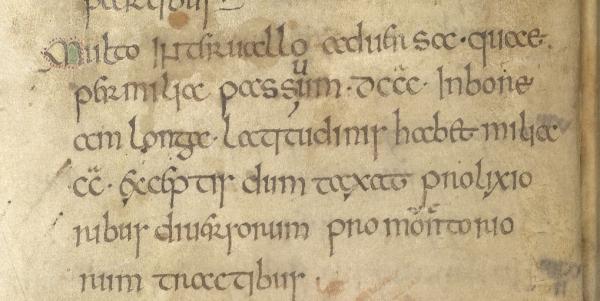 partibus
Multo interuallo aduersae · quae
per milia passuum · dccc · In bore
am longa · latitudinis habet milia
cc · exceptis dum taxat prolixio
ribus diuersorum promontorio
rum tractibus ·